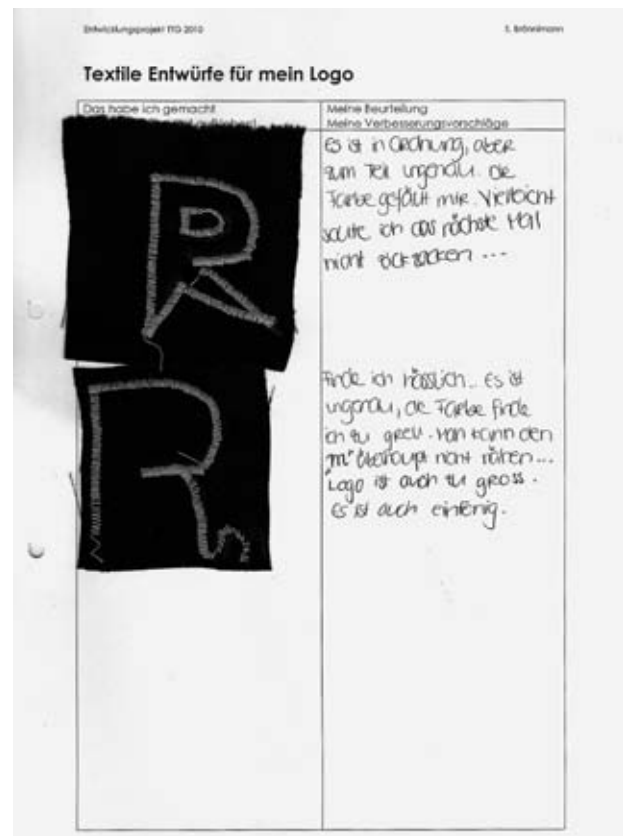 Entwicklungsprojekt TTG 2010
S. Brönnimann
Textile Entwürfe für mein Logo
Das habe ich gemacht
Meine Beurteilung
Meine Verbesserungsvorschläge
Es ist in Ordnung, aber
zum Teil ungenau. Die
Farbe gefällt mir. Vielleicht
sollte ich das nächste Mal
nicht zickzacken ...
Finde ich hässlich.. Es ist
ungenau, die Farbe finde
ich zu grell. Man kann den
"m" überhaupt nicht nähen...
Logo ist auch zu gross.
Es ist auch einfarbig.